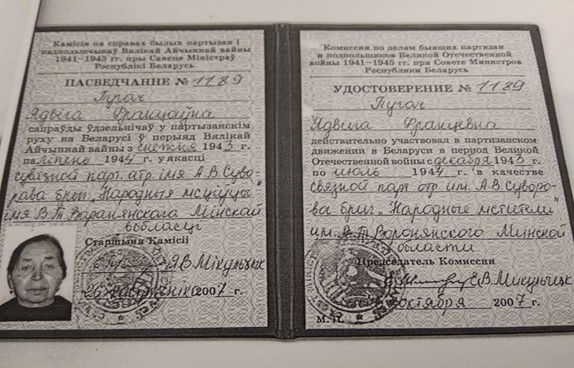 Камісія па справах былых партызан і
падпольшчыкаў Вялікай Айчыннай вайны
1941–1945 гг. пры Савеце Міністраў
Рэспублікі Беларусь
ПАСВЕДЧАННЕ № 1189
Пугач
Ядвіга Францаўна
сапраўды ўдзельнічаў у партызанскім
руху на Беларусі ў перыяд Вялікай
Айчыннай вайны з снежня 1943 г.
па ліпень 1944 г у якасці
сувязной парт. атр імя А.В Суво-
рава брыг. „Народныя мсціўцы"
імя В.Т. Варанянскага Мінскай
вобласці
Старшыня Камісіі
Я.В Мікульчык
26 кастрычніка 2007 г.
Комиссия по делам бывших партизан
и подпольщиков Великой Отечественной
войны 1941–1945 гг. при Совете Министров
Республики Беларусь
УДОСТОВЕРЕНИЕ № 1189
Пугач
Ядвига Францевна
действительно участвовал в партизанском
движении в Беларуси в период Великой
Отечественной войны с декабря 1943 г.
по июль 1944 г. в качестве
связной парт отр им. А.В Суворо-
ва бриг. „Народные мстители"
им. В.Т. Воронянского Минской
области
Председатель Комиссии
Е.В Микульчик
октября 2007 г.
М. П.